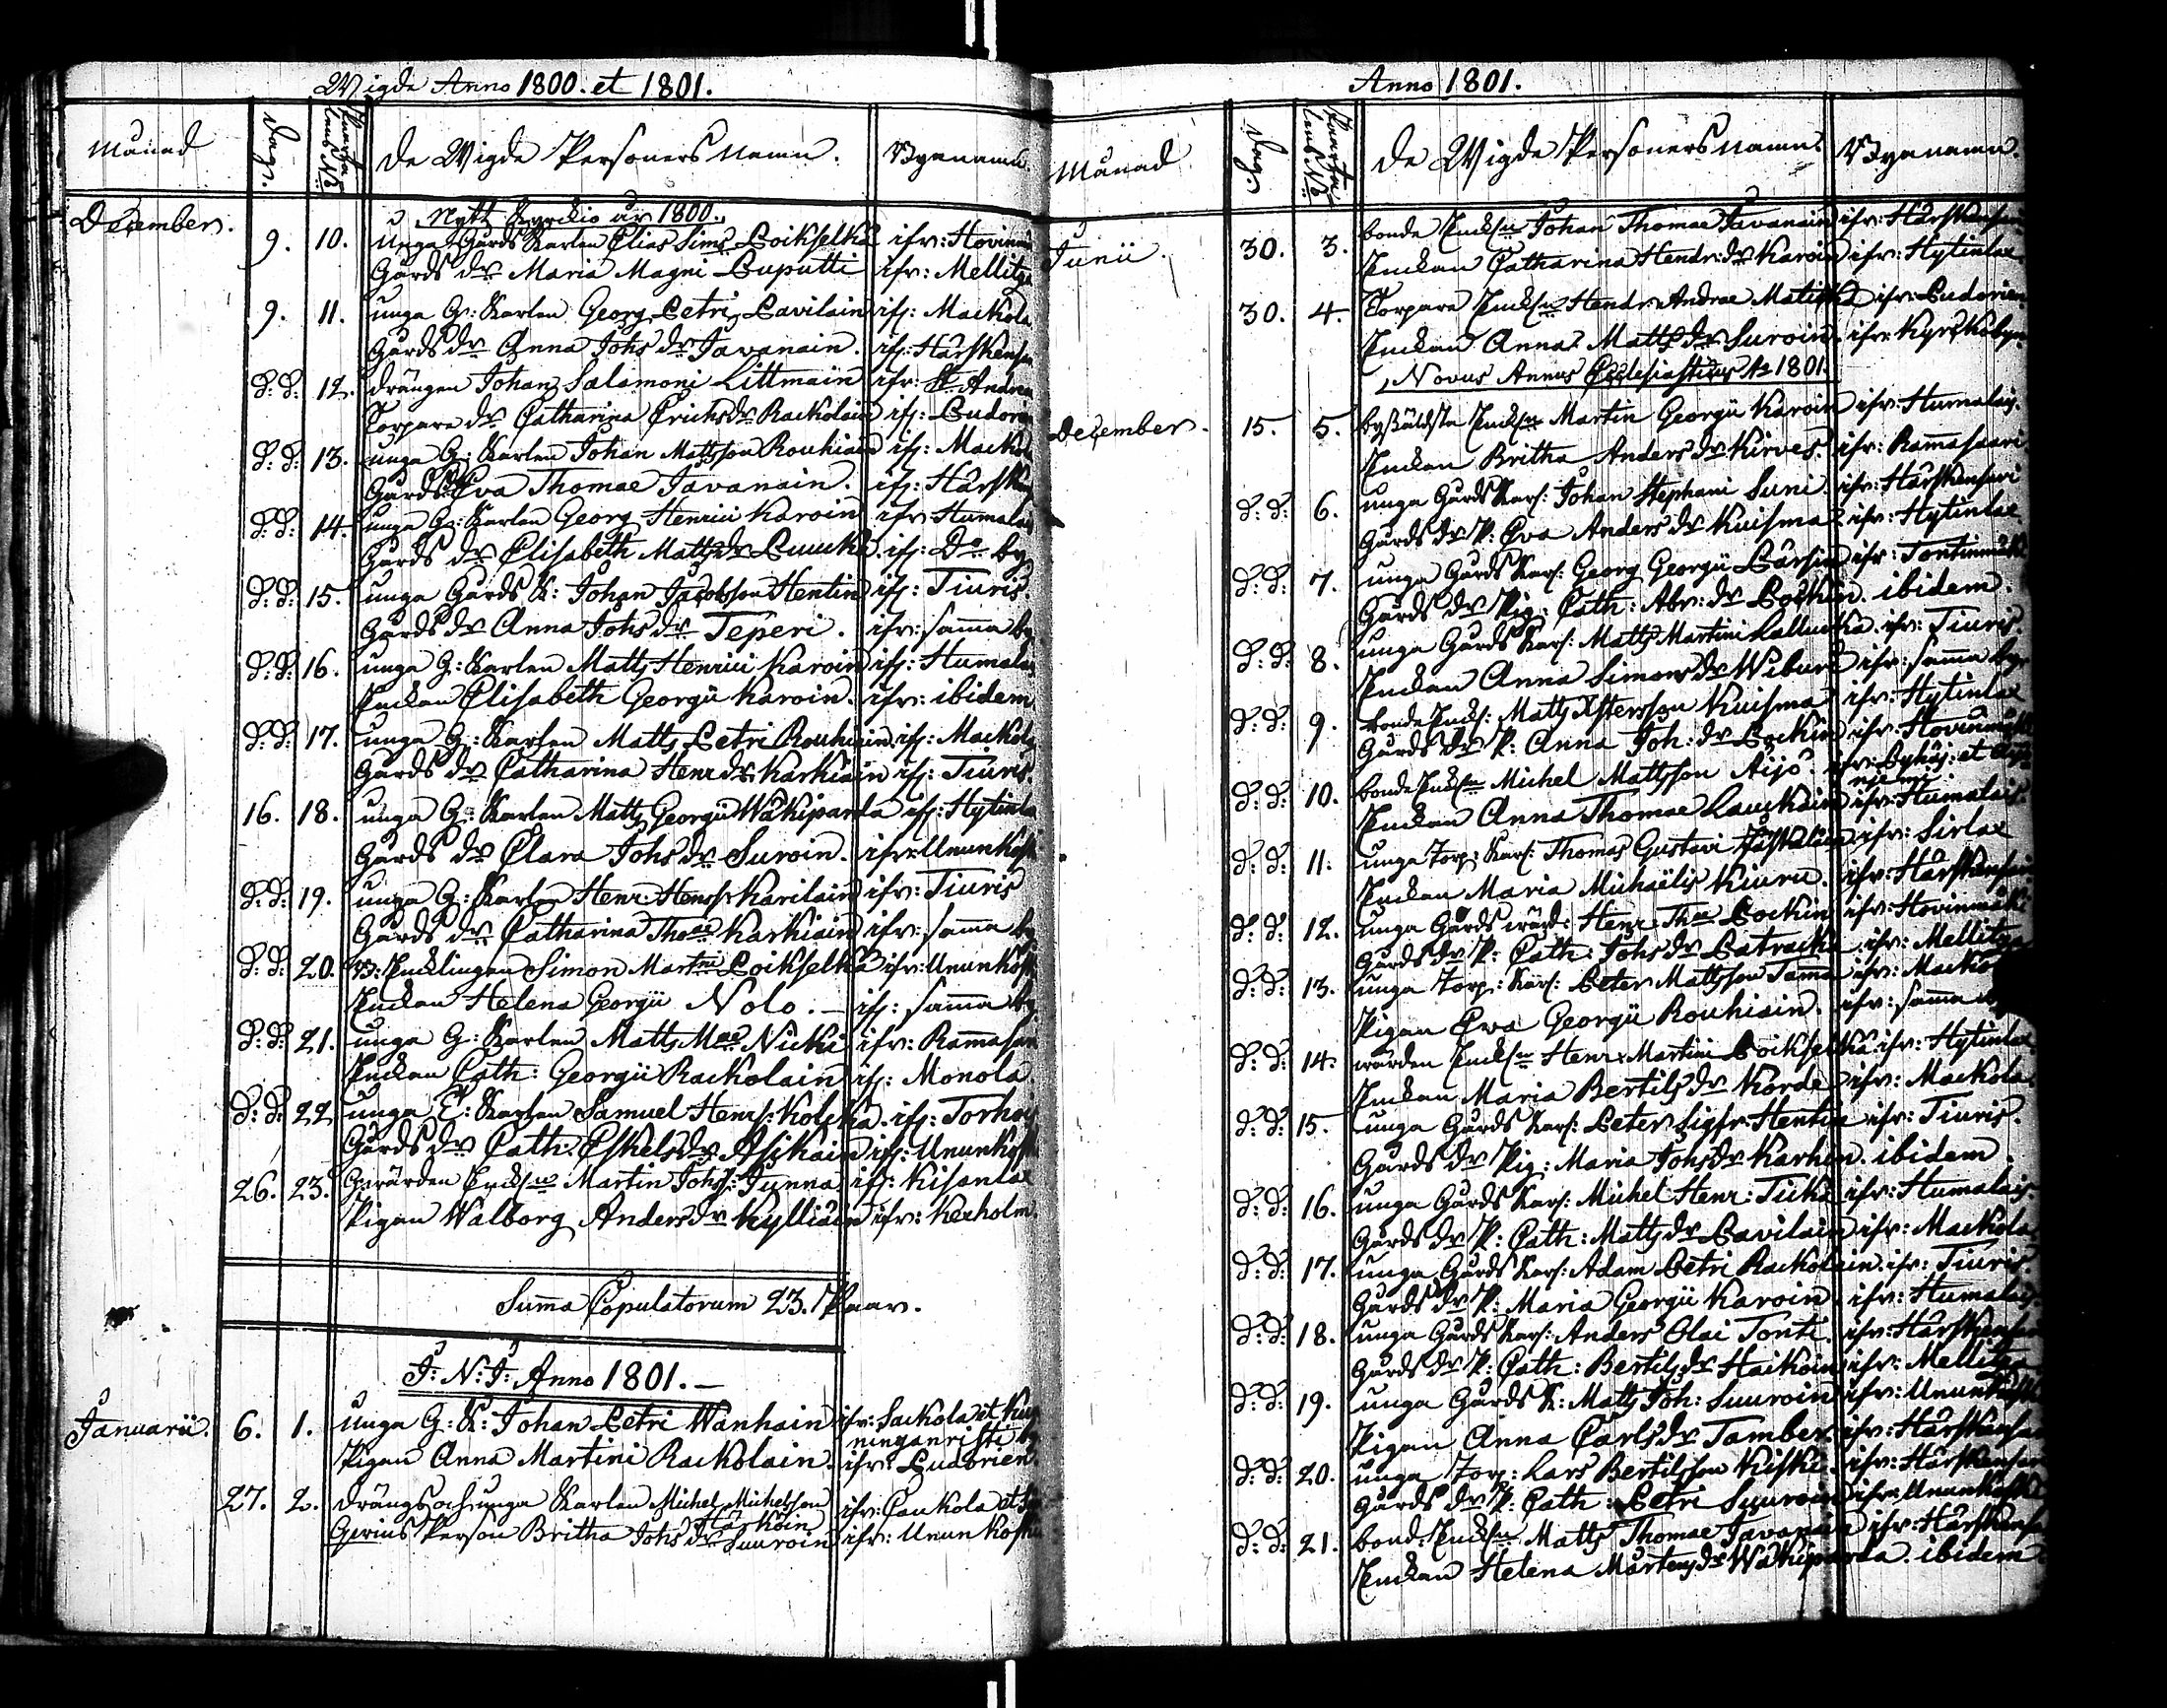 Wigde Anno 1800. et 1801.
Månad Dag. Paarta lens No De Wigde Personers namn. Byanamn.
December. Nytt Kyrckio år 1800.
9. 10. Unga Gårds Karlen Elias Sims Loikselkä ifr: Hovinmä
Gårds dr Maria Magni Luputti ifr: Mellitzä
9. 11. unga G: Karlen Georg Petri Pavilain ifr: Mackola
Gårds dr Anna Johs dr Javanain. ifr: Härskensa
D: D: 12. drängen Johan Salamoni Littmain ifr: St Andreæ
Torpare dr Catharina Erichs dr Rackolain ifr: Pudori
D: D: 13. unga G: Karlen Johan Mattsson Rouhiain ifr: Mackola
Gårds dr Eva Thomae Javanain. ifr: Härsken
D: D: 14. unga G: Karlen Georg Henrici Karoin ifr: Humalais
Gårds dr Elisabeth Matts dr Puucka. ifr: Do by
D: D: 15. unga Gårds K: Johan Jacobsson Hentin ifr: Tiuris
Gårds dr Anna Johs dr Teperi. ifr: samma by
D: D: 16. unga G: Karlen Matts Henrici Karoin ifr: Humalais
Enckan Elisabeth Georgii Karoin. ifr: ibidem
D: D: 17. unga G: Karlen Matts Petri Rouhiain. ifr: Mackola
Gårds dr Catharina Henr dr Karkiain ifr: Tiuris.
16. 18. unga G: Karlen Matts Georgii Wäkiparda ifr: Hytinla
Gårds dr Clara Johs dr Suroin. ifr: Ununkosk
D: D: 19. unga G: Karlen Henr: Henrss: Karilain ifr: Tiuris
Gårds dr Catharina Thoae Karkiain ifr: samma by
D: D: 20. B: Encklingen Simon Martini Loikselkä ifr: Ununkosk
Enckan Helena Georgii Nolo. — ifr: samma by
D: D: 21. unga G: Karlen Matts Mae Nicki ifr: Rämäsari
Enckan Cath: Georgii Rackolain ifr: Monola.
D: D: 22 unga T: Karlen Samuel Henrs: Kolcka. ifr: Torhois
Gårds dr Cath: Eskels dr Asikain ifr: Ununkosk
26. 23. G: wärden Encksn Martin Johss: Junna ifr: Kisanlax
Pigan Walborg Anders dr Kylliäin ifr: Kexholm.
Summa Copulatorum 23. Paar.
J: N: J: Anno 1801. —
Januarii. 6. 1. Unga G: K: Johan Petri Wanhain ifr: Sackola et Kup
ninganristi by
Pigan Anna Martini Rackolain. ifr: Pudorien.
27. 2. Drängs och unga Karlen Michel Michelsson ifr: Caukola et
Härköin
Gerins Person Britha Johs dr Suuroin ifr: Ununkoski
Anno 1801.
Månad Dag. Paarta lens No De Wigde Personers namn. Byanamn.
Junii. 30. 3. bonde Encksn Johan Thomae Javanain ifr: Härskensari
Enckan Catharina Hendr: dr Karoin ifr: Hytinlax
30. 4. Torpare Encksn Hendr: Andrae Matikka ifr: Pudorien
Enckan Anna Matts dr Suroin. ifr: Kyrckobyn
Novus Annus Ecclesiasticus Ao 1801.
December. 15. 5. byssäldste Encksn Martin Georgii Karoin ifr: Humalais.
Enckan Britha Anders dr Kirves. ifr: Rämäsaari
D: D: 6. unga Gårds Karl: Johan Stephani Suni. ifr: Härskensari
Gårds dr P: Eva Anders dr Kuisma. ifr: Hytinlax
D: D: 7. unga Gårds Karl: Georg Georgii Pärsin ifr: Tontinmäki
Gårds dr Pig: Cath: Abr: dr Pockin. ibidem.
D: D: 8. unga Gårds Karl: Matts Martini Kallucka. ifr: Tiuris.
Enckan Anna Simons dr Wiburi ifr: samma by.
D: D: 9. bonde Enck: Matts Kuisma ifr: Hytinlax
Gårds dr P: Anna Joh: dr Pockin ifr: Hovinmäki
D: D: 10. bonde Encksn Michel Mattsson Aijö. ifr:
Enckan Anna Thomae Lauckain ifr: Humalais.
D: D: 11. unga Torp: Karl: Thomas Gustavi Jäskeläin ifr: Sirlax
Enckan Maria Michaëlis Kiuru. ifr: Härskensari
D: D: 12. unga Gårds wärd: Henr: Thae Pockin ifr: Hovinmäki
Gårds dr P: Cath: Johs dr Patracka. ifr: Mellitzä
D: D: 13. unga Torp: Karl: Peter Mattsson Tama ifr: Mackola
Pigan Ewa Georgii Rouhiain. ifr: samma by
D: D: 14. wärden Encksn Henr: Martini Loikselkä. ifr: Hytinlax
Enckan Maria Bertils dr Korde. ifr: Mackola
D: D: 15. unga Gårds Karl: Peter Sigfr: Hentin ifr: Tiuris.
Gårds dr Pig: Maria Johs dr Karhu. ibidem.
D: D: 16. unga Gårds Karl: Michel Henr: Ticka ifr: Humalais.
Gårds dr P: Cath: Matts dr Pavilain ifr: Mackola
D: D: 17. unga Gårds Karl: Adam Petri Rackolain. ifr: Tiuris.
Gårds dr P: Maria Georgii Karoin. ifr: Humalais.
D: D: 18. unga Gårds Karl: Anders Olai Tonti. ifr: Härskensari
Gårds dr P: Cath: Bertils dr Haikoin ifr: Mellitzä
D: D: 19. unga Gårds K: Matts Joh: Suuroin ifr: Ununkoski
Pigan Anna Carls dr Tamber. ifr: Härskensari
D: D: 20. unga Torp: Lars Bertilsson Kiski. ifr: Härskensari
Gårds dr P: Cath: Petri Suuroin ifr: Ununkoski
D: D: 21. bond: Encksn Matts Thomae Javanain ifr: Härskensari
Enckan Helena Mårtens dr Wäkiparda. ibidem